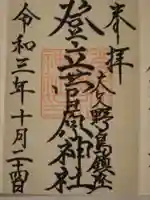 奉拝
大久野島鎮座
登立菅原神社
令和三年十月二十四日